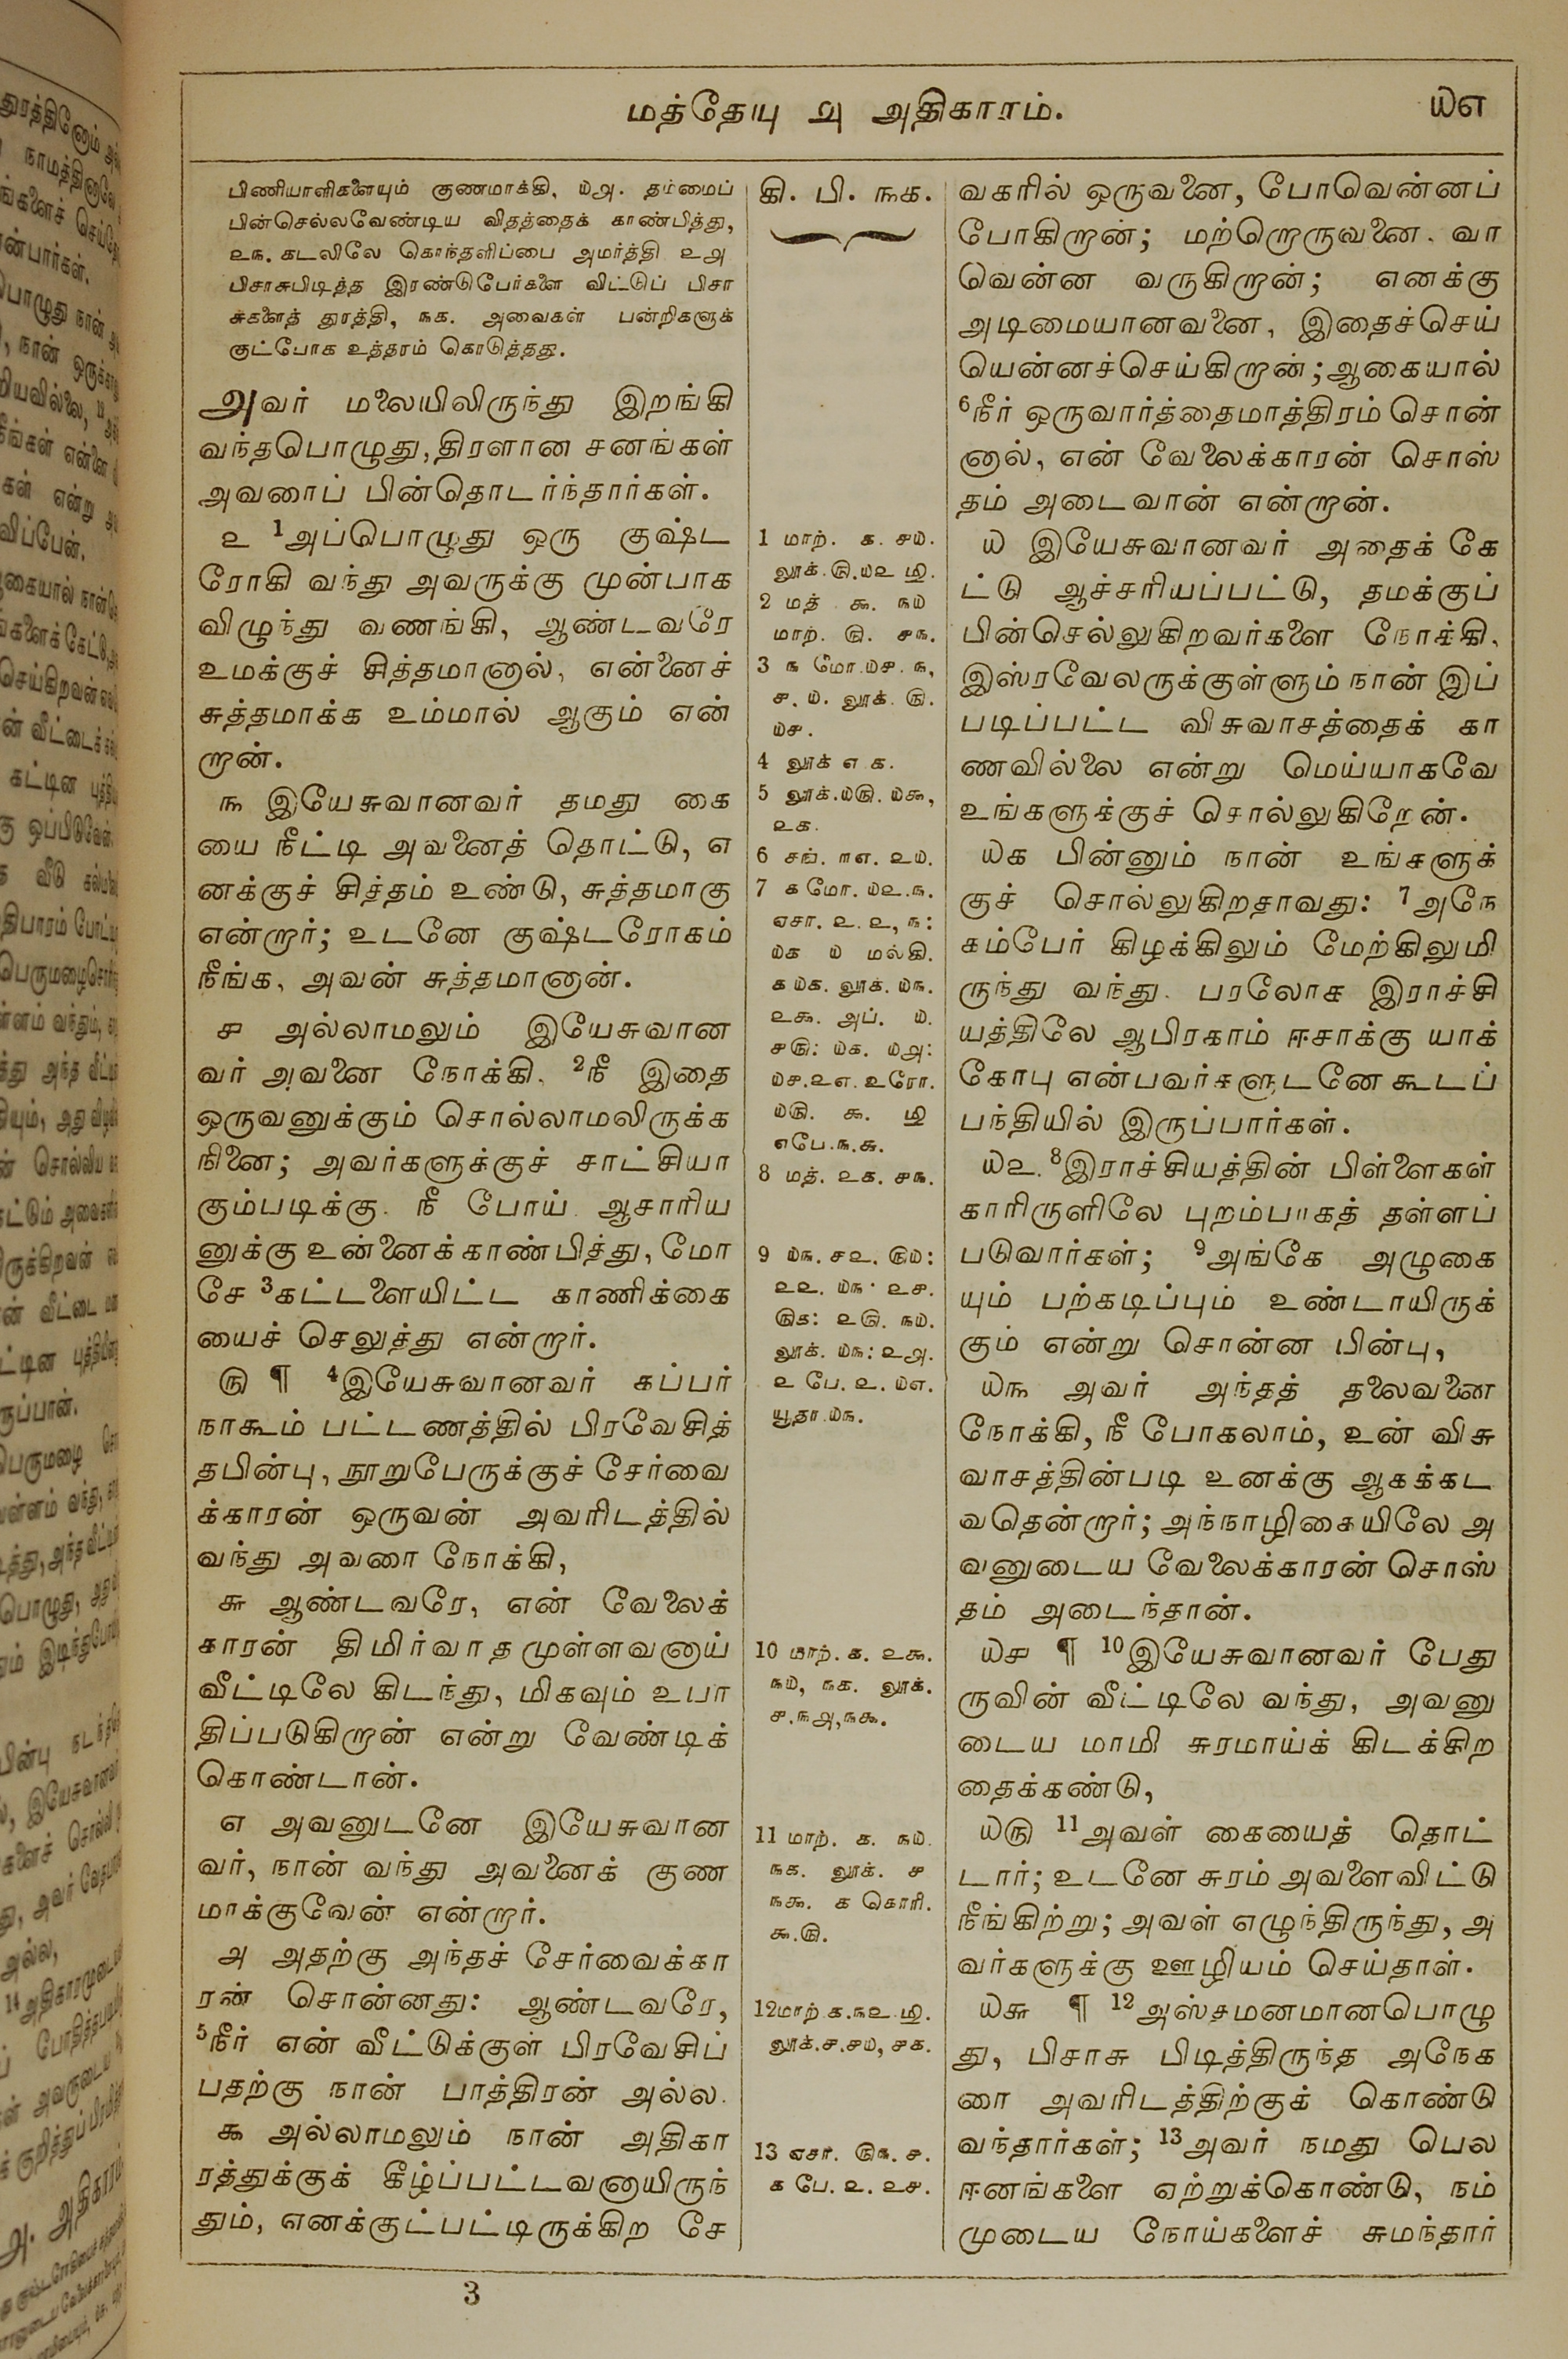 மத்தேயு அ அதிகாரம்.
௰௭
பிணியாளிகளையும் குணமாக்கி, ௰அ. தம்மைப்
பின்செல்லவேண்டிய விதத்தைக் காண்பித்து,
௨௩. கடலிலே கொந்தளிப்பை அமர்த்தி ௨அ
பிசாசுபிடித்த இரண்டுபேர்களை விட்டுப் பிசா
சுகளைத் துரத்தி, ௩௧. அவைகள் பன்றிகளுக்
குட்போக உத்தரம் கொடுத்தது.
அவர் மலையிலிருந்து இறங்கி
வந்தபொழுது, திரளான சனங்கள்
அவரைப் பின்தொடர்ந்தார்கள்.
௨ 1அப்பொழுது ஒரு குஷ்ட
ரோகி வந்து அவருக்கு முன்பாக
விழுந்து வணங்கி, ஆண்டவரே
உமக்குச் சித்தமானால், என்னைச்
சுத்தமாக்க உம்மால் ஆகும் என்
றான்.
௩ இயேசுவானவர் தமது கை
யை நீட்டி அவனைத் தொட்டு, எ
னக்குச் சித்தம் உண்டு, சுத்தமாகு
என்றார்; உடனே குஷ்டரோகம்
நீங்க, அவன் சுத்தமானான்.
௪ அல்லாமலும் இயேசுவான
வர் அவனை நோக்கி, 2நீ இதை
ஒருவனுக்கும் சொல்லாமலிருக்க
நினை; அவர்களுக்குச் சாட்சியா
கும்படிக்கு நீ போய் ஆசாரிய
னுக்கு உன்னைக்காண்பித்து, மோ
சே 3கட்டளையிட்ட காணிக்கை
யைச் செலுத்து என்றார்.
௫ ¶ 4இயேசுவானவர் கப்பர்
நாகூம் பட்டணத்தில் பிரவேசித்
தபின்பு, நூறுபேருக்குச் சேர்வை
க்காரன் ஒருவன் அவரிடத்தில்
வந்து அவரை நோக்கி,
௬ ஆண்டவரே, என் வேலைக்
காரன் திமிர்வாதமுள்ளவனாய்
வீட்டிலே கிடந்து, மிகவும் உபா
திப்படுகிறான் என்று வேண்டிக்
கொண்டான்.
௭ அவனுடனே இயேசுவான
வர், நான் வந்து அவனைக் குண
மாக்குவேன் என்றார்.
அ அதற்கு அந்தச் சேர்வைக்கா
ரன் சொன்னது: ஆண்டவரே,
5நீர் என் வீட்டுக்குள் பிரவேசிப்
பதற்கு நான் பாத்திரன் அல்ல.
௯ அல்லாமலும் நான் அதிகா
ரத்துக்குக் கீழ்ப்பட்டவனாயிருந்
தும், எனக்குட்பட்டிருக்கிற சே
கி. பி. ௩௧.
1 மாற். ௧. ௪௰.
லூக். ௫. ௰௨ ௸.
2 மத் ௯. ௩௰
மாற். ௫. ௪௩.
3 ௩ மோ. ௰௪. ௩,
௪. ௰. லூக். ௫.
௰௪.
4 லூக் ௭ ௧.
5 லூக். ௰௫. ௰௯,
௨௧.
6 சங். ௱௭. ௨௰.
7 ௧ மோ. ௰௨. ௩.
ஏசா. ௨. ௨, ௩:
௰௧ ௰ மல்கி.
௧ ௰௧. லூக். ௰௩.
௨௯. அப். ௰.
௪௫: ௰௧. ௰அ:
௰௪. ௨௭. உரோ.
௰௫. ௯. ௸
எபே. ௩. ௬.
8 மத். ௨௧. ௪௩.
9 ௰௩. ௪௨. ௫௰:
௨௨. ௰௩: ௨௪.
௫௧: ௨௫. ௩௰.
லூக். ௰௩: ௨அ.
௨ பே. ௨. ௰௭.
யூதா. ௰௩.
10 மாற். ௧. ௨௯.
௩௰, ௩௧. லூக்.
௪. ௩அ, ௩௯.
11 மாற். ௧. ௩௰.
௩௧. லூக். ௪
௩௯. ௧ கொரி.
௯. ௫.
12மாற். ௧. ௩௨ ௸.
லூக். ௪. ௪௰, ௪௧.
13 ஏசா. ௫௩. ௪.
௧ பே. ௨. ௨௪.
வகரில் ஒருவனை, போவென்னப்
போகிறான்; மற்றொருவனை, வா
வென்ன வருகிறான்; எனக்கு
அடிமையானவனை, இதைச்செய்
யென்னச்செய்கிறான்; ஆகையால்
6நீர் ஒருவார்த்தைமாத்திரம் சொன்
னால், என் வேலைக்காரன் சொஸ்
தம் அடைவான் என்றான்.
௰ இயேசுவானவர் அதைக் கே
ட்டு ஆச்சரியப்பட்டு, தமக்குப்
பின்செல்லுகிறவர்களை நோக்கி,
இஸ்ரவேலருக்குள்ளும் நான் இப்
படிப்பட்ட விசுவாசத்தைக் கா
ணவில்லை என்று மெய்யாகவே
உங்களுக்குச் சொல்லுகிறேன்.
௰௧ பின்னும் நான் உங்களுக்
குச் சொல்லுகிறதாவது: 7அநே
கம்பேர் கிழக்கிலும் மேற்கிலுமி
ருந்து வந்து, பரலோக இராச்சி
யத்திலே ஆபிரகாம் ஈசாக்கு யாக்
கோபு என்பவர்களுடனே கூடப்
பந்தியில் இருப்பார்கள்.
௰௨. 8இராச்சியத்தின் பிள்ளைகள்
காரிருளிலே புறம்பாகத் தள்ளப்
படுவார்கள்; 9அங்கே அழுகை
யும் பற்கடிப்பும் உண்டாயிருக்
கும் என்று சொன்ன பின்பு,
௰௩ அவர் அந்தத் தலைவனை
நோக்கி, நீ போகலாம், உன் விசு
வாசத்தின்படி உனக்கு ஆகக்கட
வதென்றார்; அந்நாழிகையிலே அ
வனுடைய வேலைக்காரன் சொஸ்
தம் அடைந்தான்.
௰௪ ¶ 10இயேசுவானவர் பேது
ருவின் வீட்டிலே வந்து, அவனு
டைய மாமி சுரமாய்க் கிடக்கிற
தைக்கண்டு,
௰௫ 11அவள் கையைத் தொட்
டார்; உடனே சுரம் அவளைவிட்டு
நீங்கிற்று; அவள் எழுந்திருந்து, அ
வர்களுக்கு ஊழியம் செய்தாள்.
௰௬ ¶ 12அஸ்தமனமானபொழு
து, பிசாசு பிடித்திருந்த அநேக
ரை அவரிடத்திற்குக் கொண்டு
வந்தார்கள்; 13அவர் நமது பெல
ஈனங்களை ஏற்றுக்கொண்டு, நம்
முடைய நோய்களைச் சுமந்தார்
3